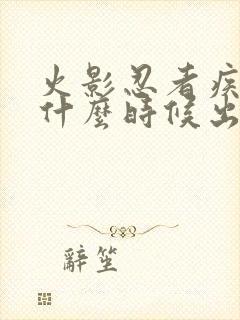 火影忍者疾
什麼時候出
辭笙